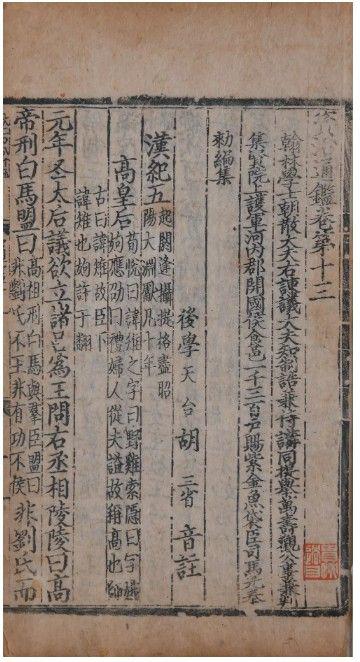 資治通鑑卷第十三
翰林學士朝散大夫右諫議大夫知制誥兼侍講同提舉萬壽觀公事兼判
集賢院上護軍河內郡開國侯食邑一千三百戶賜紫金魚袋臣司馬光奉
勑編集
後學天台胡三省音註
漢紀五 起閼逢攝提格盡昭
陽大淵獻凡十年
高皇后 荀悅曰諱雉之字曰野雞索隱曰字娥
姁應劭曰禮婦人從夫諡故稱高也師
古曰諱雉故臣
諱雉也姁許于翻
元年冬太后議欲立諸呂為王問右丞相陵陵曰高
帝刑白馬盟曰 高祖刑白馬與羣臣盟曰
非劉氏不王非有功不侯 非劉氏而